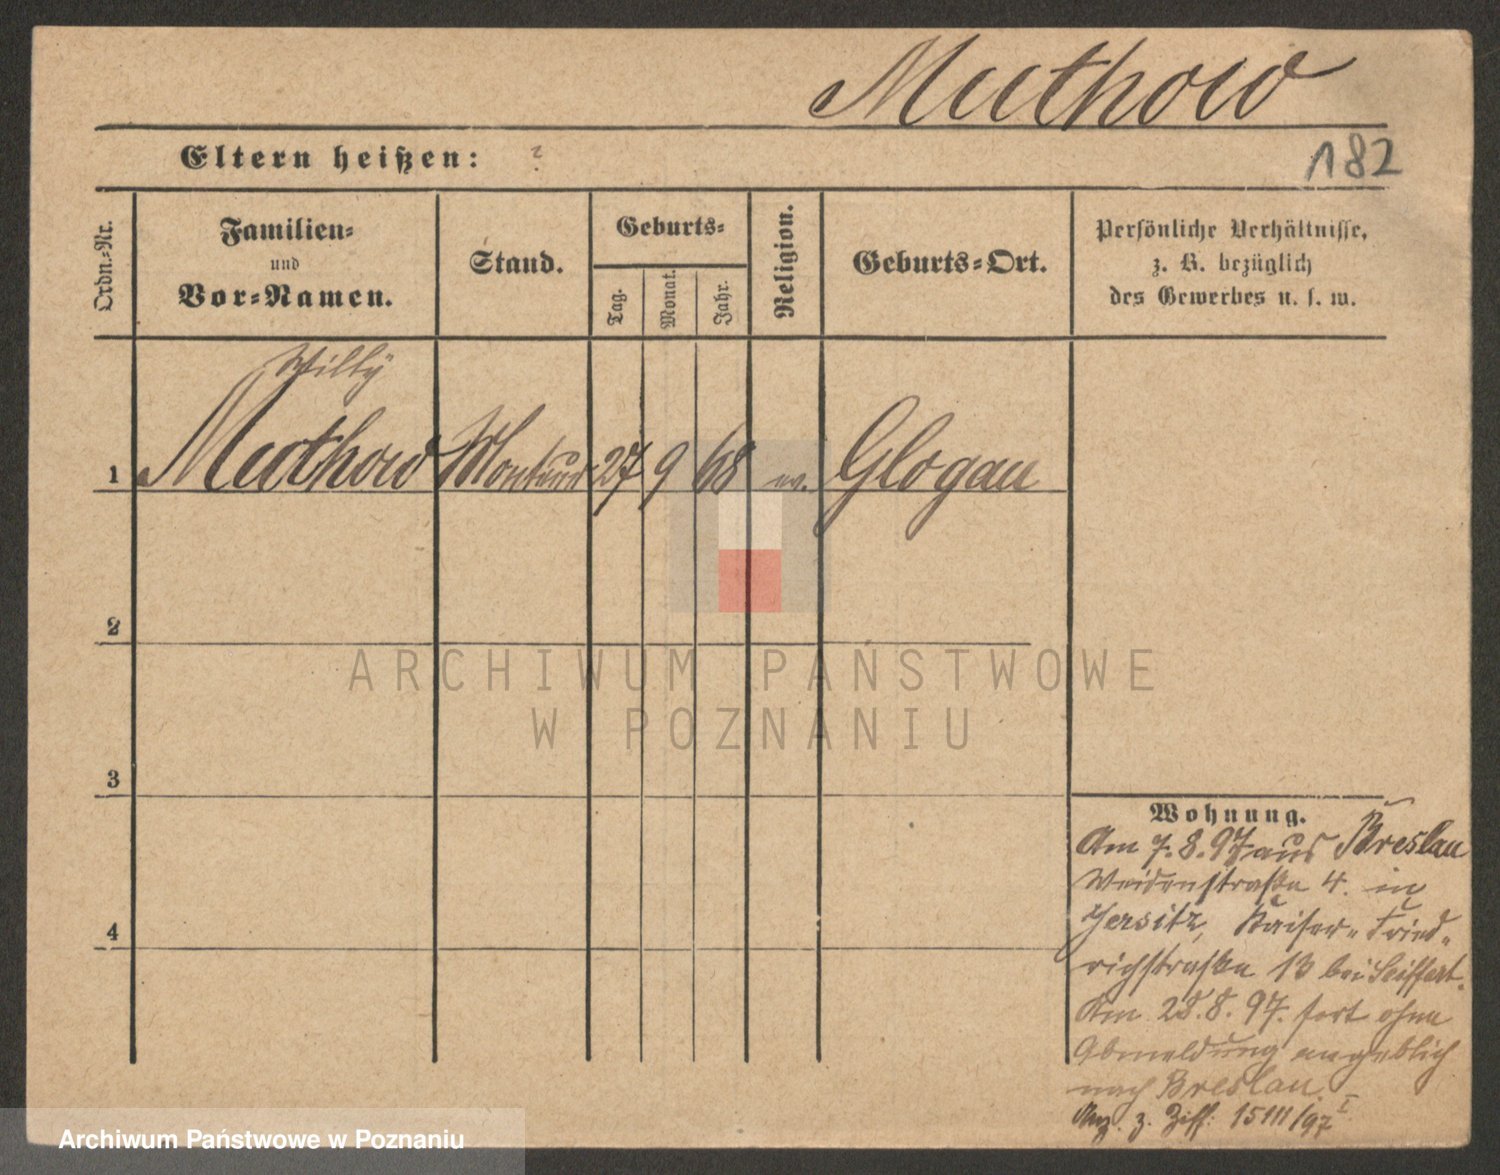 Muthow
182
Eltern heißen: ?
Ordn.-Nr.
Familien-
und
Vor-Namen.
Stand.
Geburts-
Tag.
Monat.
Jahr.
Religion.
Geburts-Ort.
Persönliche Verhältnisse,
z. B. bezüglich
des Gewerbes u. s. w.
Willy
1 Muthow Monteur 27 9 68 ev. Glogau
2
3
4
ARCHIWUM PAŃSTWOWE
W POZNANIU
Wohnung.
Am 7.8.97 aus Breslau
Weidenstraße 4. in
Jersitz, Kaiser-Fried-
richstraße 13 bei Seiffert.
Am 28.8.97. fort ohne
Abmeldung angeblich
nach Breslau.
z. Ziff: 15111/97 I
Archiwum Państwowe w Poznaniu